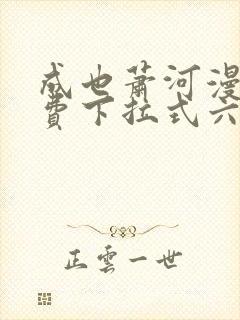 成也萧河漫
费下拉式六
正云一世